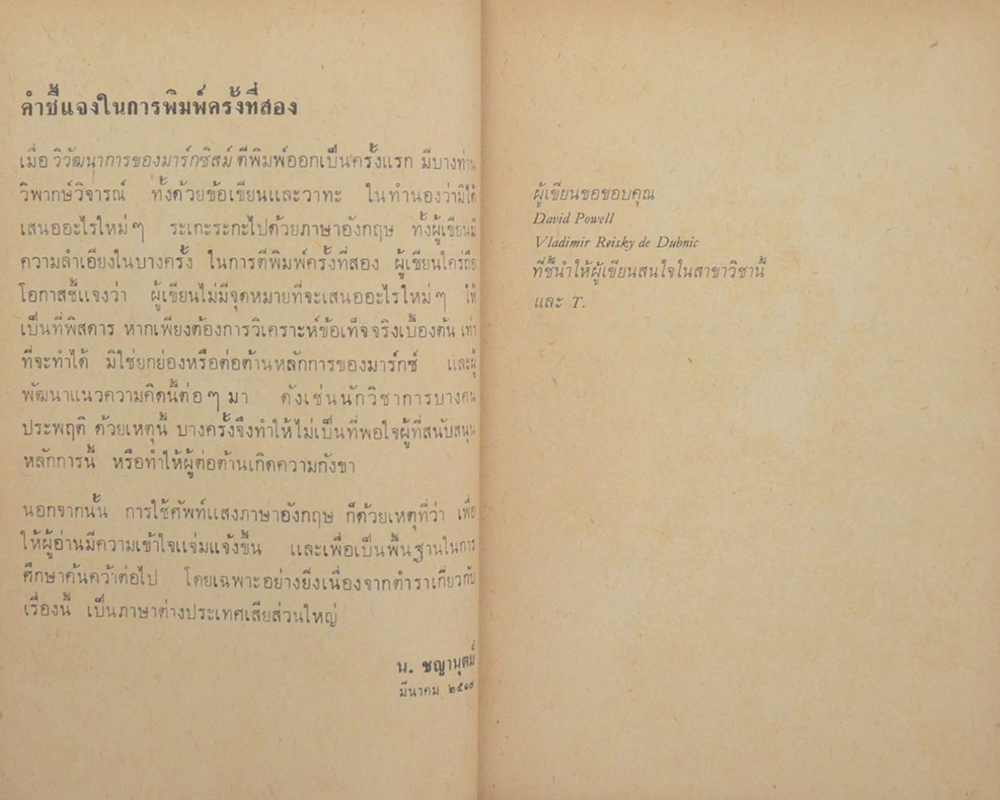 คำชี้แจงในการพิมพ์ครั้งที่สอง
เมื่อ วิวัฒนาการของมาร์กซิสม์ ตีพิมพ์ออกเป็นครั้งแรก มีบางท่าน
วิพากษ์วิจารณ์ ทั้งด้วยข้อเขียนและวาทะ ในทำนองว่ามิได้
เสนออะไรใหม่ๆ ระเกะระกะไปด้วยภาษาอังกฤษ ทั้งผู้เขียนมี
ความลำเอียงในบางครั้ง ในการตีพิมพ์ครั้งที่สอง ผู้เขียนใคร่ถือ
โอกาสชี้แจงว่า ผู้เขียนไม่มีจุดหมายที่จะเสนออะไรใหม่ๆ ให้
เป็นที่พิสดาร หากเพียงต้องการวิเคราะห์ข้อเท็จจริงเบื้องต้น เท่า
ที่จะทำได้ มิใช่ยกย่องหรือต่อต้านหลักการของมาร์กซ์ และผู้
พัฒนาแนวความคิดนี้ต่อๆ มา ดังเช่นนักวิชาการบางคน
ประพฤติ ด้วยเหตุนี้ บางครั้งจึงทำให้ไม่เป็นที่พอใจผู้ที่สนับสนุน
หลักการนี้ หรือทำให้ผู้ต่อต้านเกิดความกังขา
นอกจากนั้น การใช้ศัพท์แสงภาษาอังกฤษ ก็ด้วยเหตุที่ว่า เพื่อ
ให้ผู้อ่านมีความเข้าใจแจ่มแจ้งขึ้น และเพื่อเป็นพื้นฐานในการ
ศึกษาค้นคว้าต่อไป โดยเฉพาะอย่างยิ่งเนื่องจากตำราเกี่ยวกับ
เรื่องนี้ เป็นภาษาต่างประเทศเสียส่วนใหญ่
น. ชญานุตม์
มีนาคม ๒๕๑๗
ผู้เขียนขอขอบคุณ
David Powell
Vladimir Reisky de Dubnic
ที่ชี้นำให้ผู้เขียนสนใจในสาขาวิชานี้
และ T.